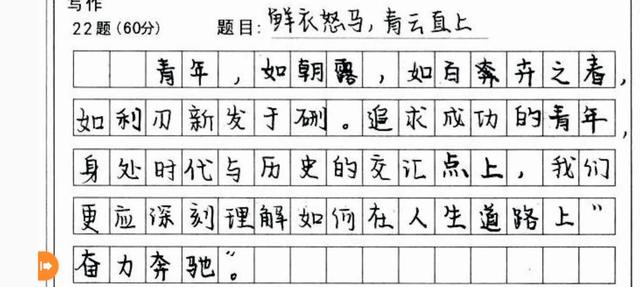 写作
22题(60分) 题目:鲜衣怒马,青云直上
青年,如朝露,如百奔卉之春,
如利刃新发于硎。追求成功的青年,
身处时代与历史的交汇点上,我们
更应深刻理解如何在人生道路上"
奋力奔驰"。